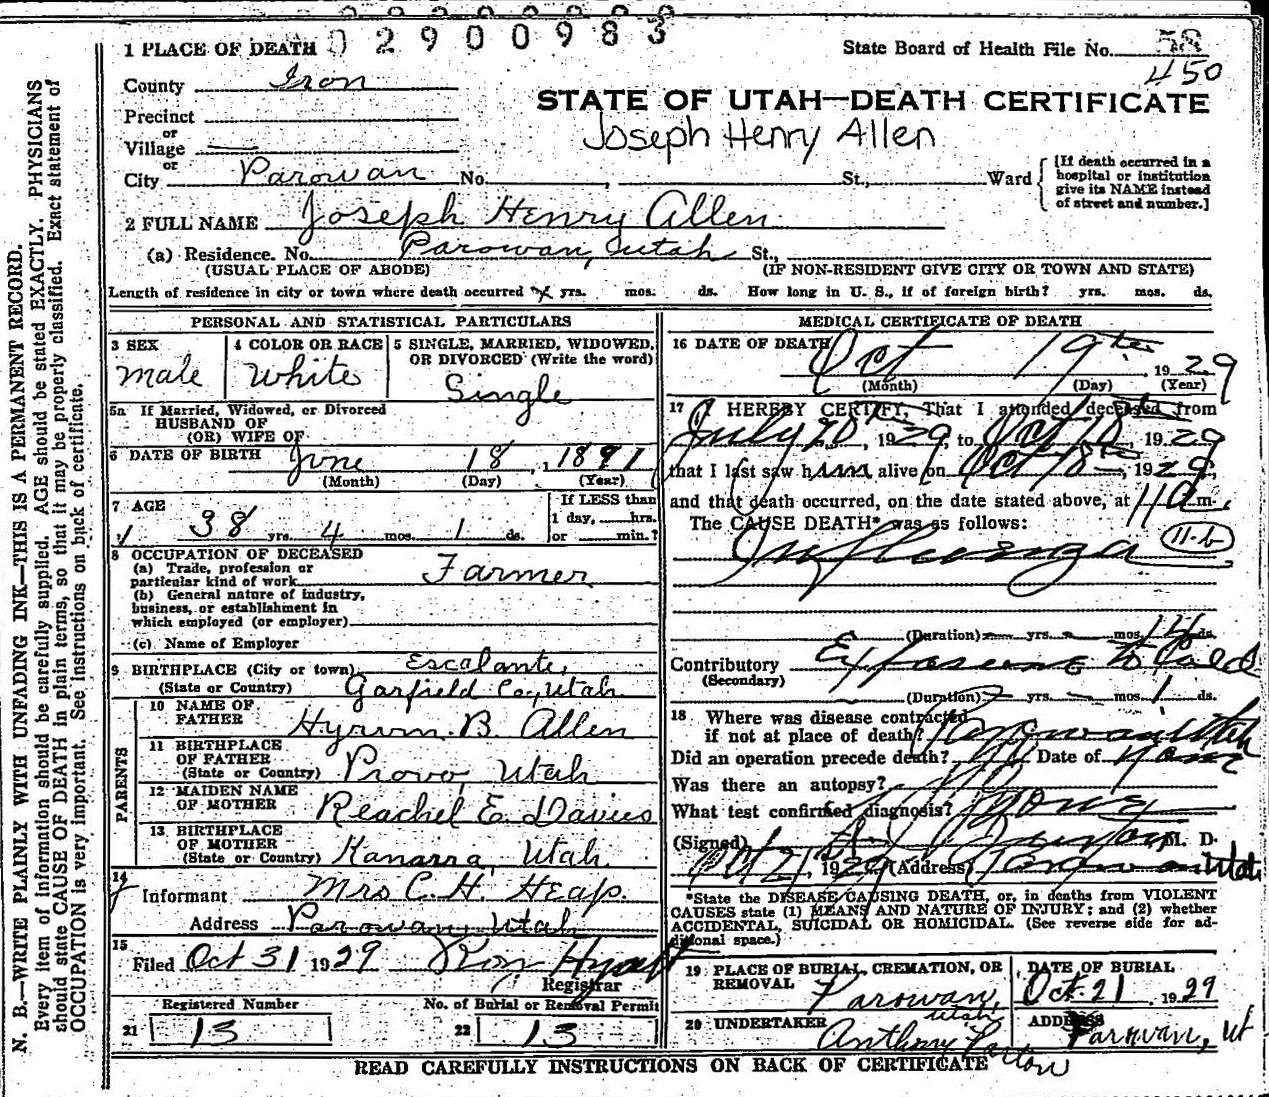 02900983
1 PLACE OF DEATH
State Board of Health File No. 58
450
County Iron
STATE OF UTAH—DEATH CERTIFICATE
Joseph Henry Allen
Precinct
or
Village
or
City Parowan No. , St., Ward
[If death occurred in a
hospital or institution
give its NAME instead
of street and number.]
2 FULL NAME Joseph Henry Allen
(a) Residence. No. Parowan, Utah St.,
(USUAL PLACE OF ABODE) (IF NON-RESIDENT GIVE CITY OR TOWN AND STATE)
Length of residence in city or town where death occurred yrs. mos. ds. How long in U. S., if of foreign birth? yrs. mos. ds.
PERSONAL AND STATISTICAL PARTICULARS
3 SEX
Male
4 COLOR OR RACE
White
5 SINGLE, MARRIED, WIDOWED,
OR DIVORCED (Write the word)
Single
5a If Married, Widowed, or Divorced
HUSBAND OF
(OR) WIFE OF
6 DATE OF BIRTH June 18, 1 1891
(Month) (Day) (Year)
7 AGE
38 yrs. 4 mos. 1 ds.
If LESS than
1 day, hrs.
or min.?
8 OCCUPATION OF DECEASED
(a) Trade, profession or
particular kind of work Farmer
(b) General nature of industry,
business, or establishment in
which employed (or employer)
(c) Name of Employer
9 BIRTHPLACE (City or town) Escalante,
(State or Country) Garfield Co., Utah
PARENTS
10 NAME OF
FATHER Hyrum B. Allen
11 BIRTHPLACE
OF FATHER
(State or Country) Provo, Utah
12 MAIDEN NAME
OF MOTHER Reachel E. Davies
13 BIRTHPLACE
OF MOTHER
(State or Country) Kanarra, Utah.
14
Informant Mrs C. H. Heap.
Address Parowan, Utah
15
Filed Oct 31 1929 Roy Hyatt
Registrar
Registered Number
21 13
No. of Burial or Removal Permit
22 13
MEDICAL CERTIFICATE OF DEATH
16 DATE OF DEATH Oct 19th 1929
(Month) (Day) (Year)
17 I HEREBY CERTIFY, That I attended deceased from
July 1929, to Oct 18th, 1929
that I last saw him alive on Oct 18th, 1929,
and that death occurred, on the date stated above, at 11 a m.
The CAUSE DEATH* was as follows:
Influenza 11-b
(Duration) yrs. mos. 14 ds.
Contributory Exposure to Cold
(Secondary)
(Duration) yrs. mos. 1 ds.
18 Where was disease contracted
if not at place of death? Parowan Utah
Did an operation precede death? No Date of None
Was there an autopsy? No
What test confirmed diagnosis? None
(Signed) M. D.
Oct 21, 1929 (Address) Parowan Utah
*State the DISEASE CAUSING DEATH, or, in deaths from VIOLENT
CAUSES state (1) MEANS AND NATURE OF INJURY; and (2) whether
ACCIDENTAL, SUICIDAL OR HOMICIDAL. (See reverse side for ad-
ditional space.)
19 PLACE OF BURIAL, CREMATION, OR
REMOVAL Parowan,
Utah
DATE OF BURIAL
Oct. 21 1929
20 UNDERTAKER
Anthony Paxton
ADDRESS
Parowan, Ut
READ CAREFULLY INSTRUCTIONS ON BACK OF CERTIFICATE
N. B.—WRITE PLAINLY WITH UNFADING INK—THIS IS A PERMANENT RECORD.
Every item of information should be carefully supplied. AGE should be stated EXACTLY. PHYSICIANS
should state CAUSE OF DEATH in plain terms, so that it may be properly classified. Exact statement of
OCCUPATION is very important. See instructions on back of certificate.